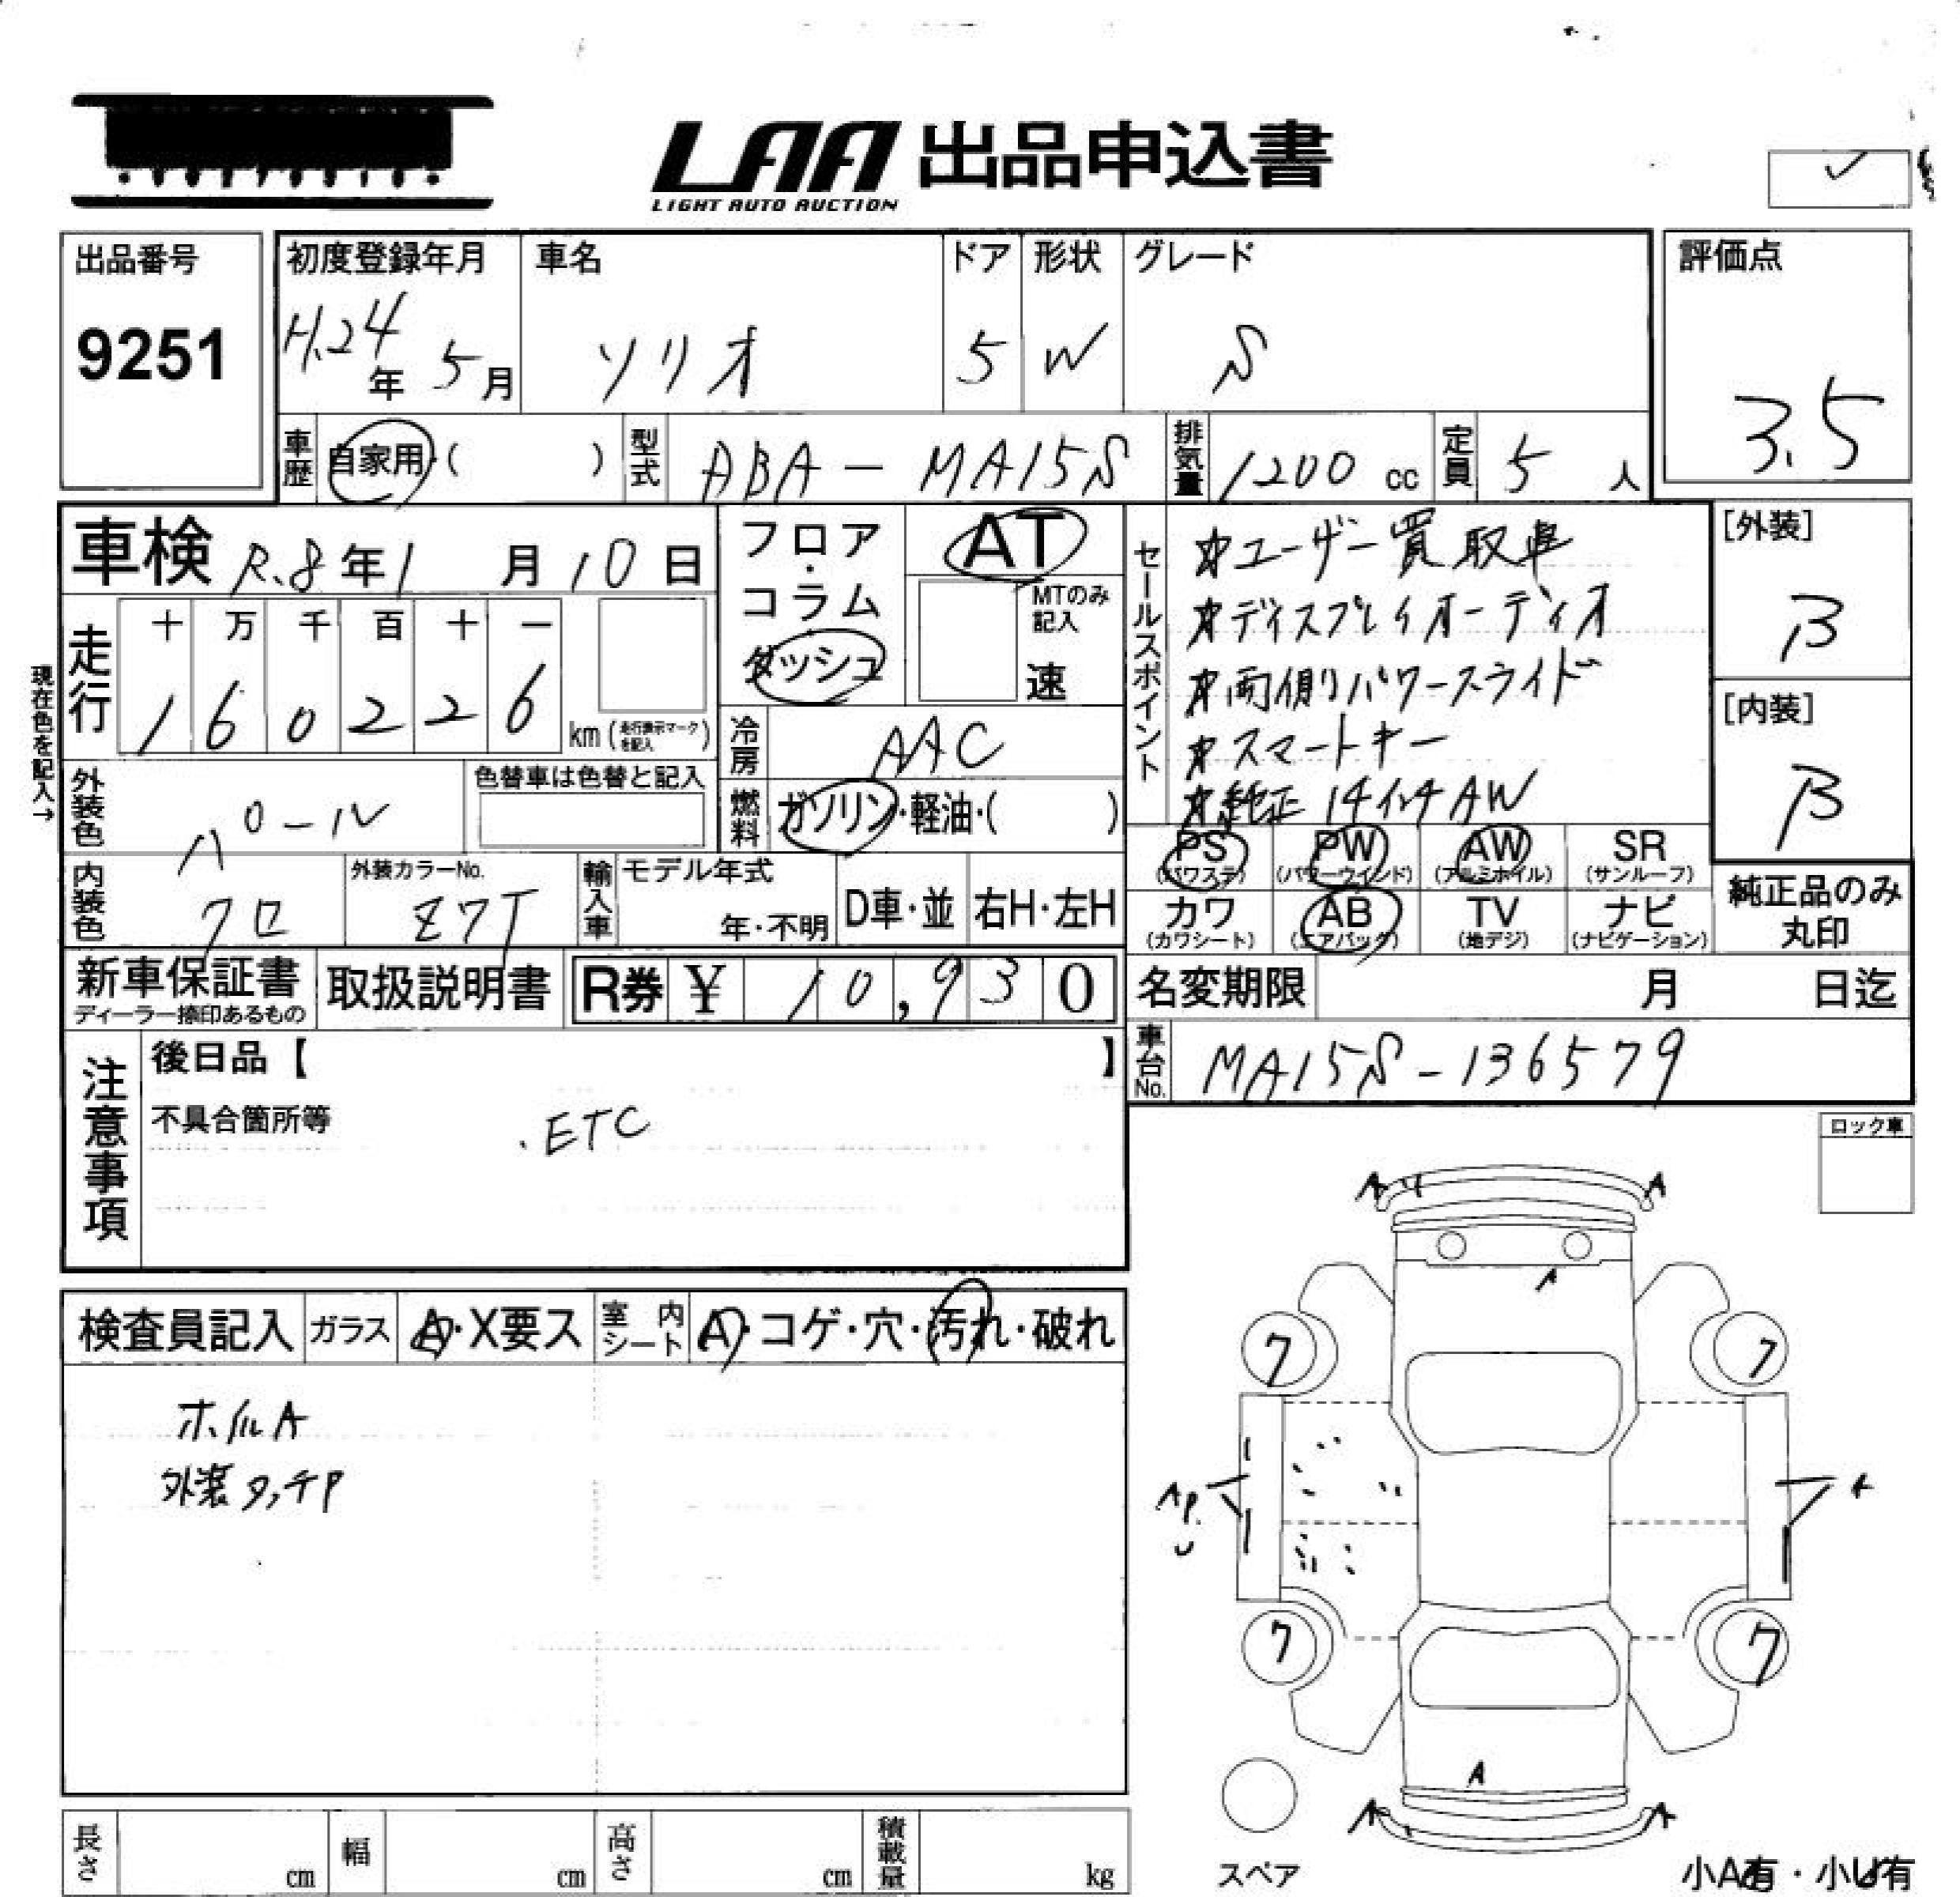 LAA 出品申込書
LIGHT AUTO AUCTION
出品番号
9251
初度登録年月
H.24年 5月
車名
ソリオ
ドア
5
形状
W
グレード
S
評価点
3.5
車歴 自家用・( )
型式 ABA-MA15S
排気量 1200 cc
定員 5 人
車検 R.8年1月10日
走行
十 万 千 百 十 一
1 6 0 2 2 6
km (走行表示マークを記入)
現在色を記入→
フロア・コラム
ダッシュ
AT
MTのみ記入
速
冷房 AAC
燃料 ガソリン・軽油・( )
セールスポイント
☆ユーザー買取車
☆ディスプレイオーディオ
☆両側りパワースライド
☆スマートキー
☆純正14インチAW
[外装]
B
[内装]
B
外装色 パール
色替車は色替と記入
内装色 クロ
外装カラーNo.
Z7T
輸入車 モデル年式
年・不明
D車・並
右H・左H
PS (パワステ)
PW (パワーウインド)
AW (アルミホイル)
SR (サンルーフ)
カワ (カワシート)
AB (エアバック)
TV (地デジ)
ナビ (ナビゲーション)
純正品のみ
丸印
新車保証書
ディーラー捺印あるもの
取扱説明書
R券 ¥ 10,930
名変期限 月 日迄
車台No. MA15S-136579
注意事項
後日品【 】
不具合箇所等
・ETC
ロック車
検査員記入
ガラス A・X要ス
室内シート A・コゲ・穴・汚れ・破れ
ホイルA
外装タッチP
A A
A
7 7
AP U A
7 7
A
A A
スペア
小A有・小U有
長さ cm
幅 cm
高さ cm
積載量 kg